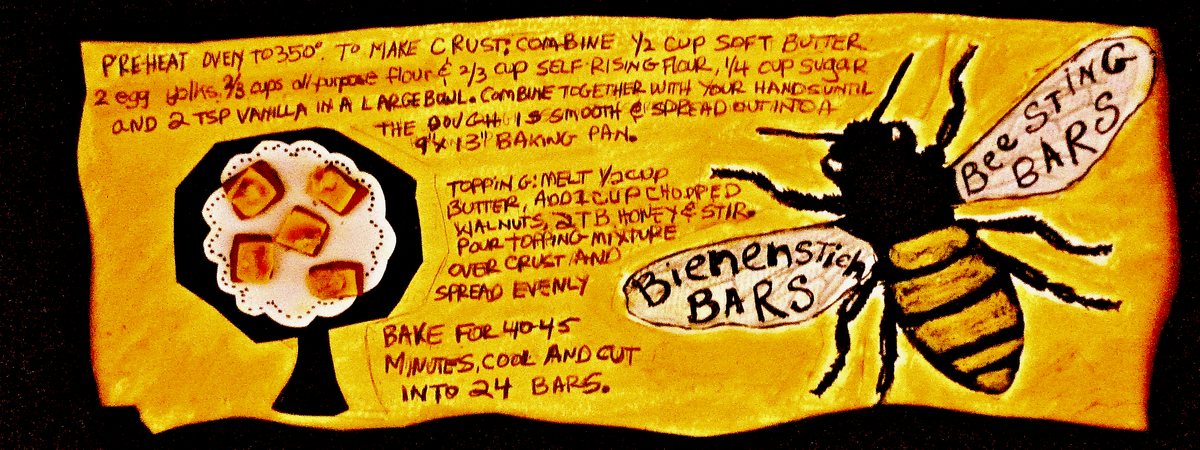 PREHEAT OVEN TO 350°. TO MAKE CRUST: COMBINE 1/2 CUP SOFT BUTTER
2 egg yolks, 2/3 cups all-purpose flour & 2/3 cup SELF-RISING FLOUR, 1/4 cup Sugar
AND 2 TSP VANILLA IN A LARGE BOWL. COMBINE TOGETHER WITH YOUR HANDS UNTIL
THE DOUGH IS SMOOTH & SPREAD OUT INTO A
9"x 13" BAKING PAN.
TOPPING: MELT 1/2 CUP
BUTTER, ADD 1 CUP CHOPPED
WALNUTS, 2 TB HONEY & STIR.
POUR TOPPING MIXTURE
OVER CRUST AND
SPREAD EVENLY
BAKE FOR 40-45
MINUTES, COOL AND CUT
INTO 24 BARS.
Bee STING
BARS
Bienenstich
BARS